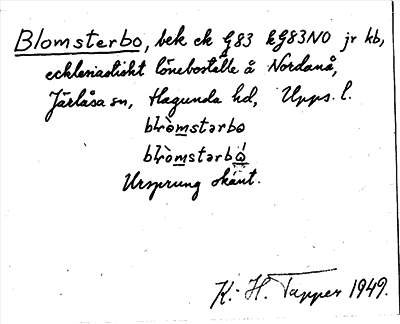 Blomsterbo, bek ek G83 kG83NO jr kb,
eckleriastiskt löneboställe å Nordanå,
Järlåsa sn, Hagunda hd, Upps. l.
Ursprung okänt.
K.-H. Tapper 1949.